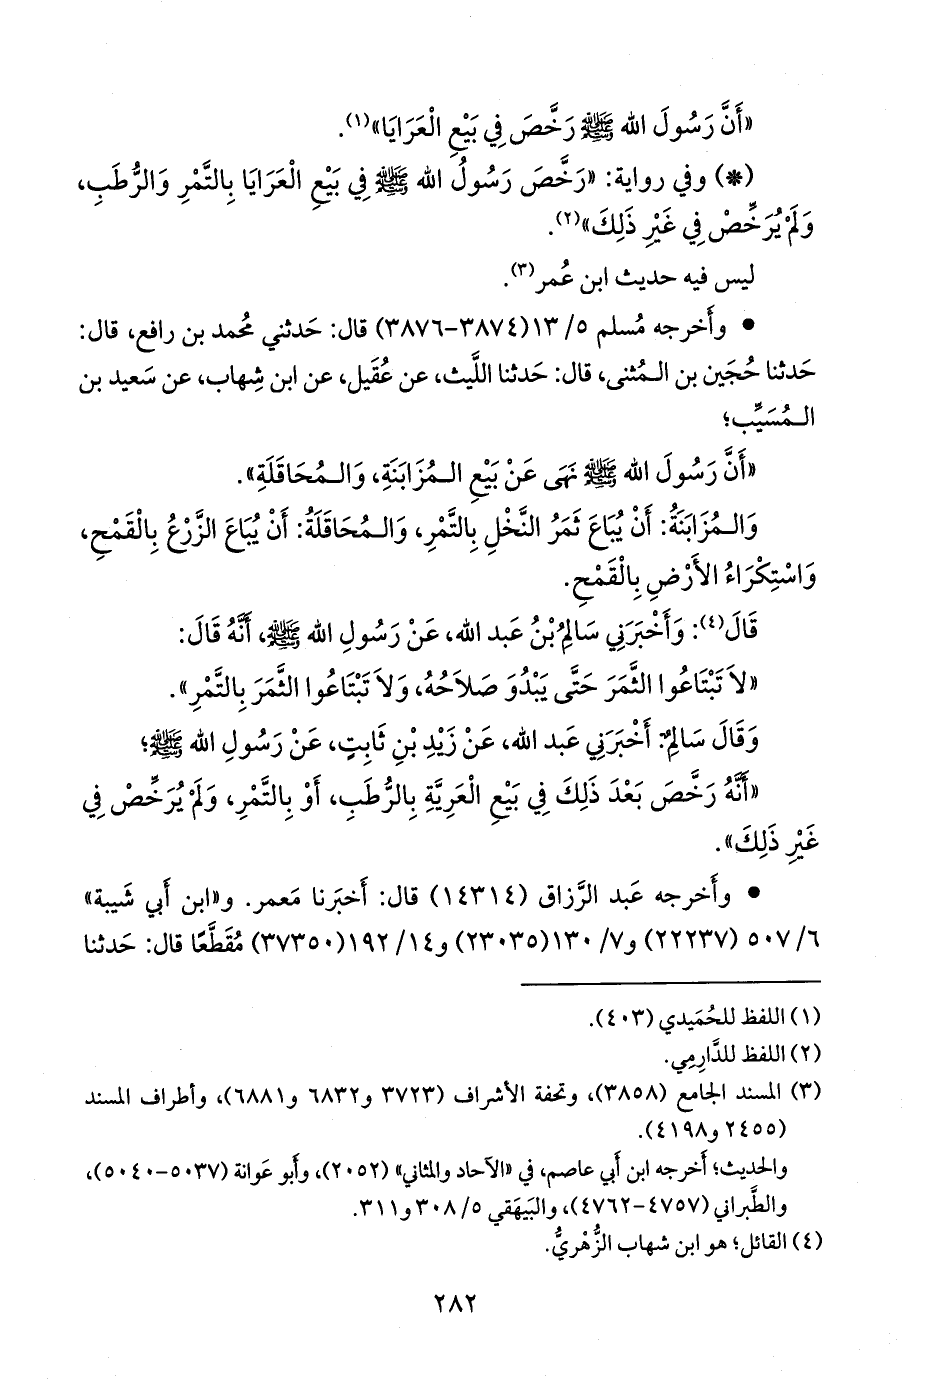 «أَنَّ رَسُولَ الله ﷺ رَخَّصَ فِي بَيْعِ الْعَرَايَا»(١).
(*) وفي رواية: «رَخَّصَ رَسُولُ الله ﷺ فِي بَيْعِ الْعَرَايَا بِالتَّمْرِ وَالرُّطَبِ،
وَلَمْ يُرَخِّصْ فِي غَيْرِ ذَلِكَ»(٢).
ليس فيه حديث ابن عُمر(٣).
• وأَخرجه مُسلم ٥/ ١٣(٣٨٧٤-٣٨٧٦) قال: حَدثني مُحمد بن رافع، قال:
حَدثنا حُجَين بن الـمُثنى، قال: حَدثنا اللَّيث، عن عُقَيل، عن ابن شِهاب، عن سَعيد بن
الـمُسَيِّب؛
«أَنَّ رَسُولَ الله ﷺ نَهَى عَنْ بَيْعِ الـمُزَابَنَةِ، وَالـمُحَاقَلَةِ».
وَالـمُزَابَنَةُ: أَنْ يُبَاعَ ثَمَرُ النَّخْلِ بِالتَّمْرِ، وَالـمُحَاقَلَةُ: أَنْ يُبَاعَ الزَّرْعُ بِالْقَمْحِ،
وَاسْتِكْرَاءُ الأَرْضِ بِالْقَمْحِ.
قَالَ(٤): وَأَخْبَرَنِي سَالِمُ بْنُ عَبد الله، عَنْ رَسُولِ الله ﷺ، أَنَّهُ قَالَ:
«لاَ تَبْتَاعُوا الثَّمَرَ حَتَّى يَبْدُوَ صَلاَحُهُ، وَلاَ تَبْتَاعُوا الثَّمَرَ بِالتَّمْرِ».
وَقَالَ سَالِمٌ: أَخْبَرَنِي عَبد الله، عَنْ زَيْدِ بْنِ ثَابِتٍ، عَنْ رَسُولِ الله ﷺ؛
«أَنَّهُ رَخَّصَ بَعْدَ ذَلِكَ فِي بَيْعِ الْعَرِيَّةِ بِالرُّطَبِ، أَوْ بِالتَّمْرِ، وَلَمْ يُرَخِّصْ فِي
غَيْرِ ذَلِكَ».
• وأَخرجه عَبد الرَّزاق (١٤٣١٤) قال: أَخبَرنا مَعمر. و«ابن أَبي شَيبة»
٦/ ٥٠٧ (٢٢٢٣٧) و٧/ ١٣٠(٢٣٠٣٥) و١٤/ ١٩٢(٣٧٣٥٠) مُقَطَّعًا قال: حَدثنا
(١) اللفظ للحُمَيدي (٤٠٣).
(٢) اللفظ للدَّارِمِي.
(٣) المسند الجامع (٣٨٥٨)، وتحفة الأشراف (٣٧٢٣ و٦٨٣٢ و٦٨٨١)، وأطراف المسند
(٢٤٥٥ و٤١٩٨).
والحديث؛ أَخرجه ابن أَبي عاصم، في «الآحاد والمثاني» (٢٠٥٢)، وأَبو عَوانة (٥٠٣٧-٥٠٤٠)،
والطَّبراني (٤٧٥٧-٤٧٦٢)، والبَيهَقي ٥/ ٣٠٨ و٣١١.
(٤) القائل؛ هو ابن شهاب الزُّهْريُّ.
٢٨٢